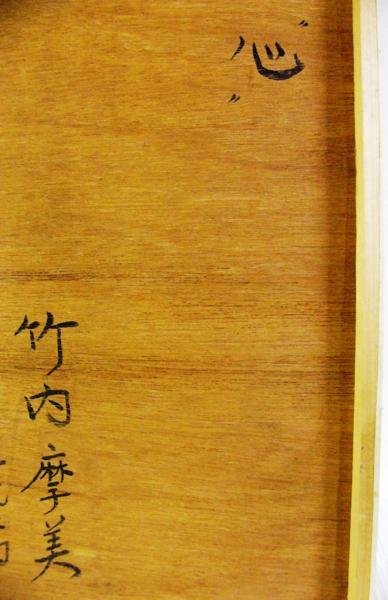 〝心〟
竹内摩美